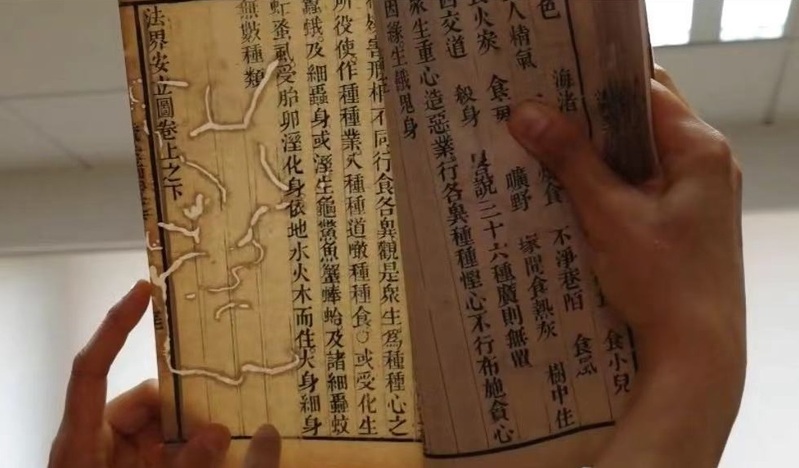 食小兒
色
海渚 食 不淨巷陌 食 樹中住
人精氣 曠野 塚間食熱灰
食火炭 食
四交道 殺身 畧說三十六種廣則無量
眾生重心造惡業行各異種種慳心不行布施貪心
因緣生餓鬼身
害形相不同行食各異觀是眾生為種種心之
所役使作種種業入種種道噉種種食○或受化生
蠶蛾及細蟲身或溼生龜鱉魚蟹蜯蛤及諸細蟲蚊
虻蚤虱受胎卵溼化身依地水火木而住大身細身
無數種類
法界安立圖卷上之下